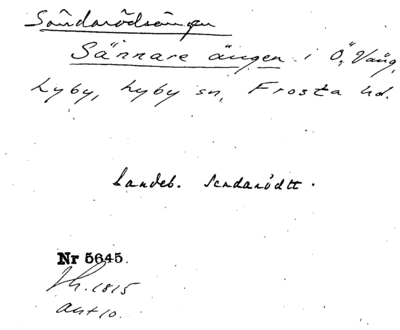 Söndarödsängen
Sännare ängen i Ö, Vång,
Lyby, Lyby sn, Frosta hd.
Landeb. Sendarödtt.
Nr 5645.
Sk. 1815
akt 10.